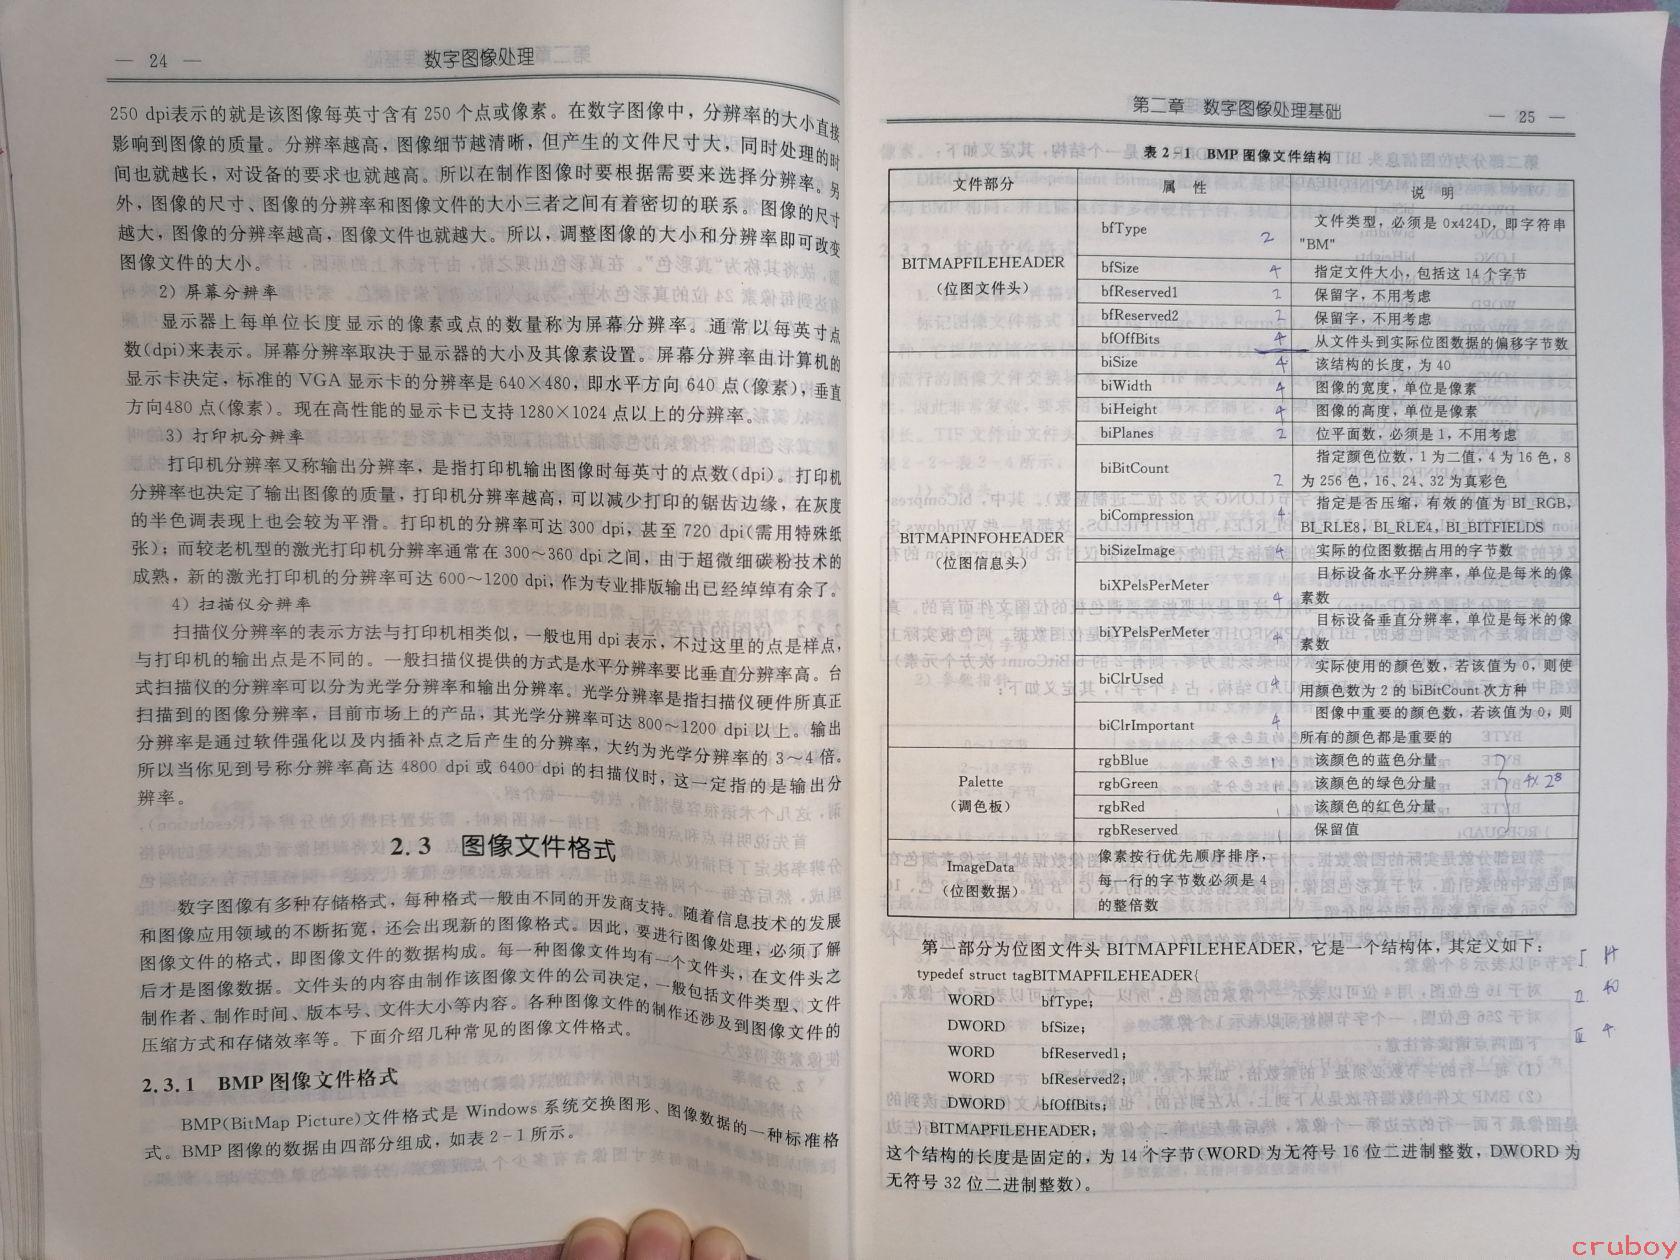 — 24 —
数字图像处理
250 dpi表示的就是该图像每英寸含有 250 个点或像素。在数字图像中，分辨率的大小直接
影响到图像的质量。分辨率越高，图像细节越清晰，但产生的文件尺寸大，同时处理的时
间也就越长，对设备的要求也就越高。所以在制作图像时要根据需要来选择分辨率。另
外，图像的尺寸、图像的分辨率和图像文件的大小三者之间有着密切的联系。图像的尺寸
越大，图像的分辨率越高，图像文件也就越大。所以，调整图像的大小和分辨率即可改变
图像文件的大小。
2) 屏幕分辨率
显示器上每单位长度显示的像素或点的数量称为屏幕分辨率。通常以每英寸点
数(dpi)来表示。屏幕分辨率取决于显示器的大小及其像素设置。屏幕分辨率由计算机的
显示卡决定，标准的 VGA 显示卡的分辨率是 640×480，即水平方向 640 点(像素)，垂直
方向480 点(像素)。现在高性能的显示卡已支持 1280×1024 点以上的分辨率。
3) 打印机分辨率
打印机分辨率又称输出分辨率，是指打印机输出图像时每英寸的点数(dpi)。打印机
分辨率也决定了输出图像的质量，打印机分辨率越高，可以减少打印的锯齿边缘，在灰度
的半色调表现上也会较为平滑。打印机的分辨率可达 300 dpi，甚至 720 dpi(需用特殊纸
张)；而较老机型的激光打印机分辨率通常在 300～360 dpi 之间，由于超微细碳粉技术的
成熟，新的激光打印机的分辨率可达 600～1200 dpi，作为专业排版输出已经绰绰有余了。
4) 扫描仪分辨率
扫描仪分辨率的表示方法与打印机相类似，一般也用 dpi 表示，不过这里的点是样点，
与打印机的输出点是不同的。一般扫描仪提供的方式是水平分辨率要比垂直分辨率高。台
式扫描仪的分辨率可以分为光学分辨率和输出分辨率。光学分辨率是指扫描仪硬件所真正
扫描到的图像分辨率，目前市场上的产品，其光学分辨率可达 800～1200 dpi 以上。输出
分辨率是通过软件强化以及内插补点之后产生的分辨率，大约为光学分辨率的 3～4 倍。
所以当你见到号称分辨率高达 4800 dpi 或 6400 dpi 的扫描仪时，这一定指的是输出分
辨率。
2.3 图像文件格式
数字图像有多种存储格式，每种格式一般由不同的开发商支持。随着信息技术的发展
和图像应用领域的不断拓宽，还会出现新的图像格式。因此，要进行图像处理，必须了解
图像文件的格式，即图像文件的数据构成。每一种图像文件均有一个文件头，在文件头之
后才是图像数据。文件头的内容由制作该图像文件的公司决定，一般包括文件类型、文件
制作者、制作时间、版本号、文件大小等内容。各种图像文件的制作还涉及到图像文件的
压缩方式和存储效率等。下面介绍几种常见的图像文件格式。
2.3.1 BMP 图像文件格式
BMP(BitMap Picture)文件格式是 Windows 系统交换图形、图像数据的一种标准格
式。BMP 图像的数据由四部分组成，如表 2-1 所示。
第二章 数字图像处理基础
— 25 —
表 2-1 BMP 图像文件结构
文件部分 属 性 说 明
BITMAPFILEHEADER
(位图文件头)
bfType 2 文件类型，必须是 0x424D，即字符串
"BM"
bfSize 4 指定文件大小，包括这 14 个字节
bfReserved1 2 保留字，不用考虑
bfReserved2 2 保留字，不用考虑
bfOffBits 4 从文件头到实际位图数据的偏移字节数
BITMAPINFOHEADER
(位图信息头)
biSize 4 该结构的长度，为 40
biWidth 4 图像的宽度，单位是像素
biHeight 4 图像的高度，单位是像素
biPlanes 2 位平面数，必须是 1，不用考虑
biBitCount 2 指定颜色位数，1 为二值，4 为 16 色，8
为 256 色，16、24、32 为真彩色
biCompression 4 指定是否压缩，有效的值为 BI_RGB，
BI_RLE8，BI_RLE4，BI_BITFIELDS
biSizeImage 4 实际的位图数据占用的字节数
biXPelsPerMeter 4 目标设备水平分辨率，单位是每米的像
素数
biYPelsPerMeter 4 目标设备垂直分辨率，单位是每米的像
素数
biClrUsed 4 实际使用的颜色数，若该值为 0，则使
用颜色数为 2 的 biBitCount 次方种
biClrImportant 4 图像中重要的颜色数，若该值为 0，则
所有的颜色都是重要的
Palette
(调色板)
rgbBlue 1 该颜色的蓝色分量
rgbGreen 1 该颜色的绿色分量 4×2⁸
rgbRed 1 该颜色的红色分量
rgbReserved 1 保留值
ImageData
(位图数据)
像素按行优先顺序排序，
每一行的字节数必须是 4
的整倍数
第一部分为位图文件头 BITMAPFILEHEADER，它是一个结构体，其定义如下：
typedef struct tagBITMAPFILEHEADER{
WORD bfType;
DWORD bfSize;
WORD bfReserved1;
WORD bfReserved2;
DWORD bfOffBits;
} BITMAPFILEHEADER;
I 14
II 40
III 4
这个结构的长度是固定的，为 14 个字节(WORD 为无符号 16 位二进制整数，DWORD 为
无符号 32 位二进制整数)。
cruboy